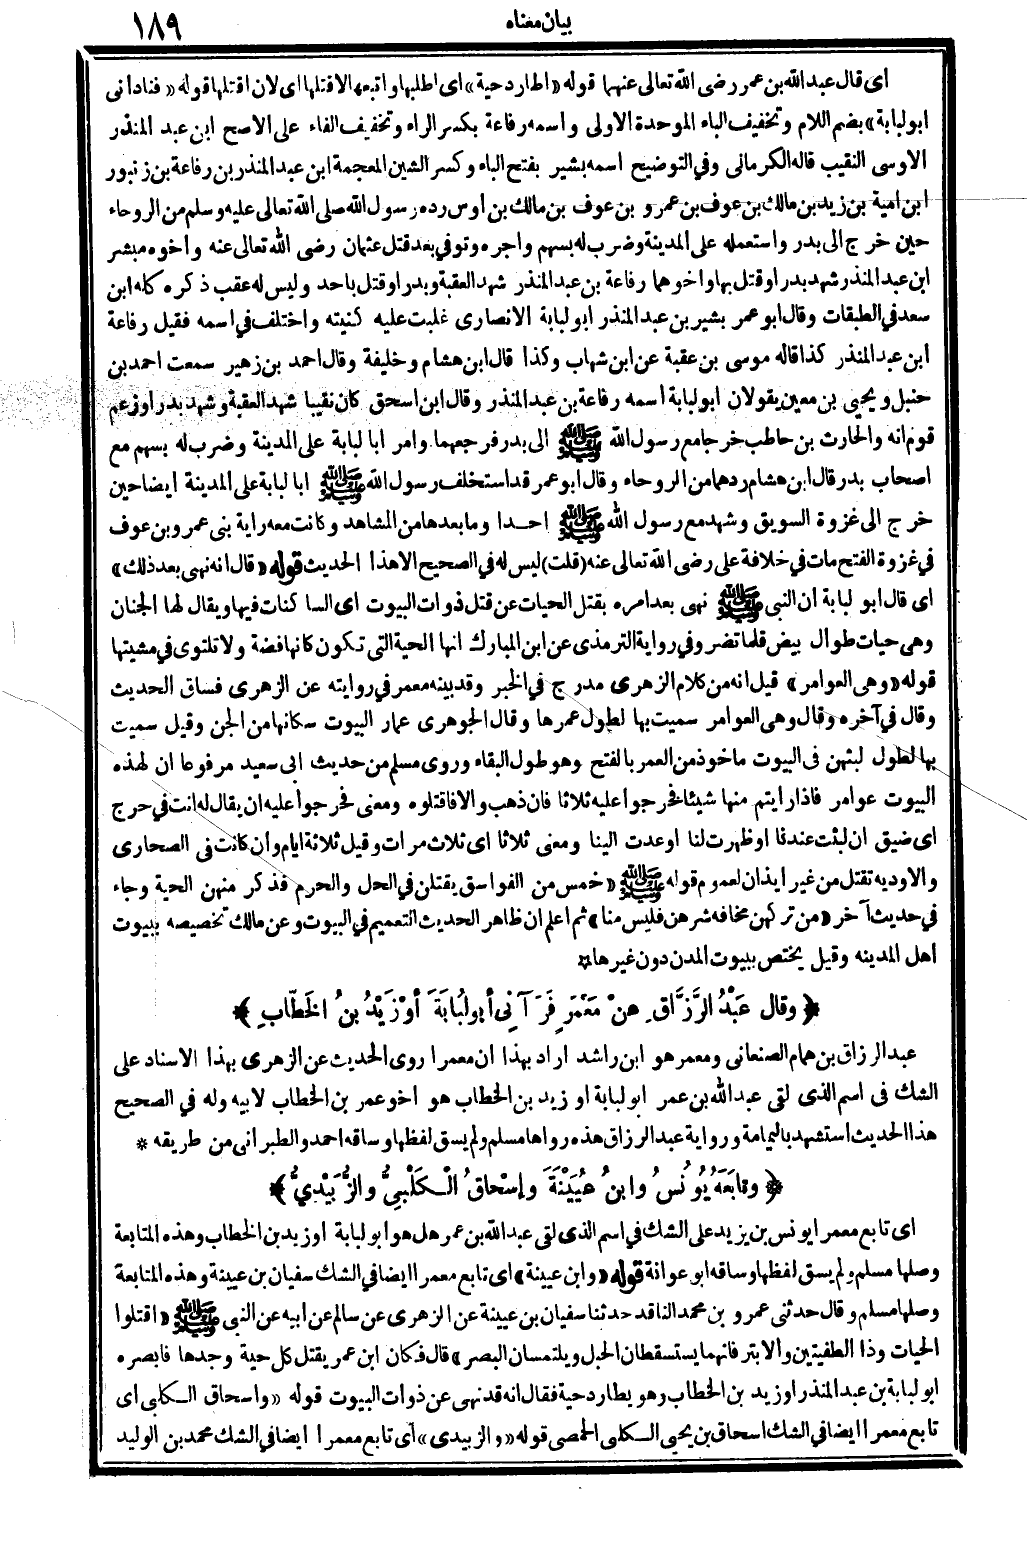 بيان معناه ١٨٩
اى قال عبدالله بن عمر رضى الله تعالى عنهما قوله «اطارد حية» اى اطلبها واتبعها لاقتلها اى لان اقتلها قوله «فنادانى
ابولبابة» بضم اللام وتخفيف الباء الموحدة الاولى واسمه رفاعة بكسر الراء وتخفيف الفاء على الاصح ابن عبد المنذر
الاوسى النقيب قاله الكرمانى وفى التوضيح اسمه بشير بفتح الباء وكسر الشين المعجمة ابن عبد المنذر بن رفاعة بن زنبور
ابن امية بن زيد بن مالك بن عوف بن عمرو بن عوف بن مالك بن أوس رده رسول الله صلى الله تعالى عليه وسلم من الروحاء
حين خرج الى بدر واستعمله على المدينة وضرب له بسهم واجره وتوفى بعد قتل عثمان رضى الله تعالى عنه وأخوه مبشر
ابن عبد المنذر شهد بدرا وقتل بها واخوهما رفاعة بن عبد المنذر شهد العقبة وبدرا وقتل باحد وليس له عقب ذكره كله ابن
سعد فى الطبقات وقال ابو عمر بشير بن عبد المنذر ابو لبابة الانصارى غلبت عليه كنيته واختلف فى اسمه فقيل رفاعة
ابن عبد المنذر كذا قاله موسى بن عقبة عن ابن شهاب وكذا قال ابن هشام وخليفة وقال احمد بن زهير سمعت احمد بن
حنبل ويحيى بن معين يقولان ابو لبابة اسمه رفاعة بن عبد المنذر وقال ابن اسحق كان نقيبا شهد العقبة وشهد بدرا وزعم
قوم انه والحارث بن حاطب خرجا مع رسول الله ﷺ الى بدر فرجعهما وامر ابا لبابة على المدينة وضرب له بسهم مع
اصحاب بدر قال ابن هشام ردهما من الروحاء وقال ابو عمر قد استخلف رسول الله ﷺ ابا لبابة على المدينة ايضا حين
خرج الى غزوة السويق وشهد مع رسول الله ﷺ احدا وما بعدها من المشاهد وكانت معه راية بنى عمرو بن عوف
فى غزوة الفتح مات فى خلافة على رضى الله تعالى عنه (قلت) ليس له فى الصحيح الا هذا الحديث قوله «قال انه نهى بعد ذلك»
اى قال ابو لبابة ان النبى ﷺ نهى بعد امره بقتل الحيات عن قتل ذوات البيوت اى الساكنات فيها ويقال لها الجنان
وهى حيات طوال بيض قلما تضر وفى رواية الترمذى عن ابن المبارك انها الحية التى تكون كانها فضة ولا تلتوى فى مشيتها
قوله «وهى العوامر» قيل انه من كلام الزهرى مدرج فى الخبر وقد بينه معمر فى روايته عن الزهرى فساق الحديث
وقال فى آخره وقال وهى العوامر سميت بها لطول عمرها وقال الجوهرى عمار البيوت سكانها من الجن وقيل سميت
بها لطول لبثهن فى البيوت ماخوذ من العمر بالفتح وهو طول البقاء وروى مسلم من حديث ابى سعيد مرفوعا ان لهذه
البيوت عوامر فاذا رايتم منها شيئا فحرجوا عليه ثلاثا فان ذهب والا فاقتلوه ومعنى فحرجوا عليه ان يقال له انت فى حرج
اى ضيق ان لبثت عندنا او ظهرت لنا او عدت الينا ومعنى ثلاثا اى ثلاث مرات وقيل ثلاثة ايام وان كانت فى الصحارى
والاوديه تقتل من غير ايذان لعموم قوله ﷺ «خمس من الفواسق يقتلن فى الحل والحرم فذكر منهن الحية وجاء
فى حديث آخر «من تركهن مخافه شرهن فليس منا» ثم اعلم ان ظاهر الحديث التعميم فى البيوت وعن مالك تخصيصه ببيوت
أهل المدينه وقيل يختص ببيوت المدن دون غيرها*
﴿ وقال عَبْدُ الرَّزَّاقِ عنْ مَعْمَرٍ فَرَآنِى أبو لُبَابَةَ أوْ زَيْدُ بنُ الخَطَّابِ ﴾
عبد الرزاق بن همام الصنعانى ومعمر هو ابن راشد اراد بهذا ان معمرا روى الحديث عن الزهرى بهذا الاسناد على
الشك فى اسم الذى لقى عبدالله بن عمر ابو لبابة او زيد بن الخطاب هو اخو عمر بن الخطاب لابيه وله فى الصحيح
هذا الحديث استشهد باليمامة ورواية عبد الرزاق هذه رواها مسلم ولم يسق لفظها وساقه احمد والطبرانى من طريقه *
﴿ وتابَعَهُ يُونُسُ وابنُ عُيَيْنَةَ وإسْحاقُ الْكَلْبِىُّ والزُّبَيْدِىُّ ﴾
اى تابع معمرا يونس بن يزيد على الشك فى اسم الذى لقى عبدالله بن عمر هل هو ابو لبابة او زيد بن الخطاب وهذه المتابعة
وصلها مسلم ولم يسق لفظها وساقه ابو عوانة قوله «وابن عيينة» اى تابع معمرا ايضا فى الشك سفيان بن عيينة وهذه المتابعة
وصلها مسلم وقال حدثنى عمرو بن محمد الناقد حدثنا سفيان بن عيينة عن الزهرى عن سالم عن أبيه عن النبى ﷺ «اقتلوا
الحيات وذا الطفيتين والابتر فانهما يستسقطان الحبل ويلتمسان البصر» قال فكان ابن عمر يقتل كل حية وجدها فابصره
ابو لبابة بن عبد المنذر او زيد بن الخطاب وهو يطارد حية فقال انه قد نهى عن ذوات البيوت قوله «واسحاق الكلبى اى
تابع معمرا ايضا فى الشك اسحاق بن يحيى الكلبى الحمصى قوله «والزبيدى» أى تابع معمرا ايضا فى الشك محمد بن الوليد